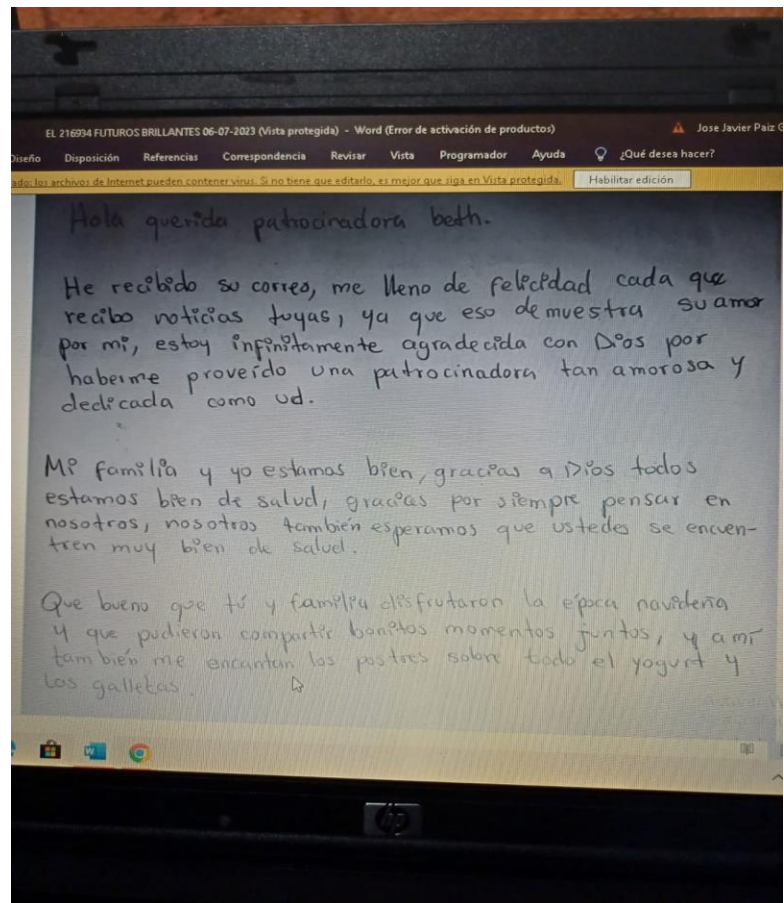 EL 216934 FUTUROS BRILLANTES 06-07-2023 (Vista protegida) - Word (Error de activación de productos)
Jose Javier Paiz G
Diseño Disposición Referencias Correspondencia Revisar Vista Programador Ayuda ¿Qué desea hacer?
los archivos de Internet pueden contener virus. Si no tiene que editarlo, es mejor que siga en Vista protegida. Habilitar edición
Hola querida patrocinadora beth.
He recibido su correo, me lleno de felicidad cada que
recibo noticias tuyas, ya que eso demuestra su amor
por mi, estoy infinitamente agradecida con Dios por
haberme proveído una patrocinadora tan amorosa y
dedicada como ud.
Mi familia y yo estamos bien, gracias a Dios todos
estamos bien de salud, gracias por siempre pensar en
nosotros, nosotros también esperamos que ustedes se encuen-
tren muy bien de salud.
Que bueno que tú y familia disfrutaron la época navideña
y que pudieron compartir bonitos momentos juntos, y a mí
también me encantan los postres sobre todo el yogurt y
las galletas.
W
hp